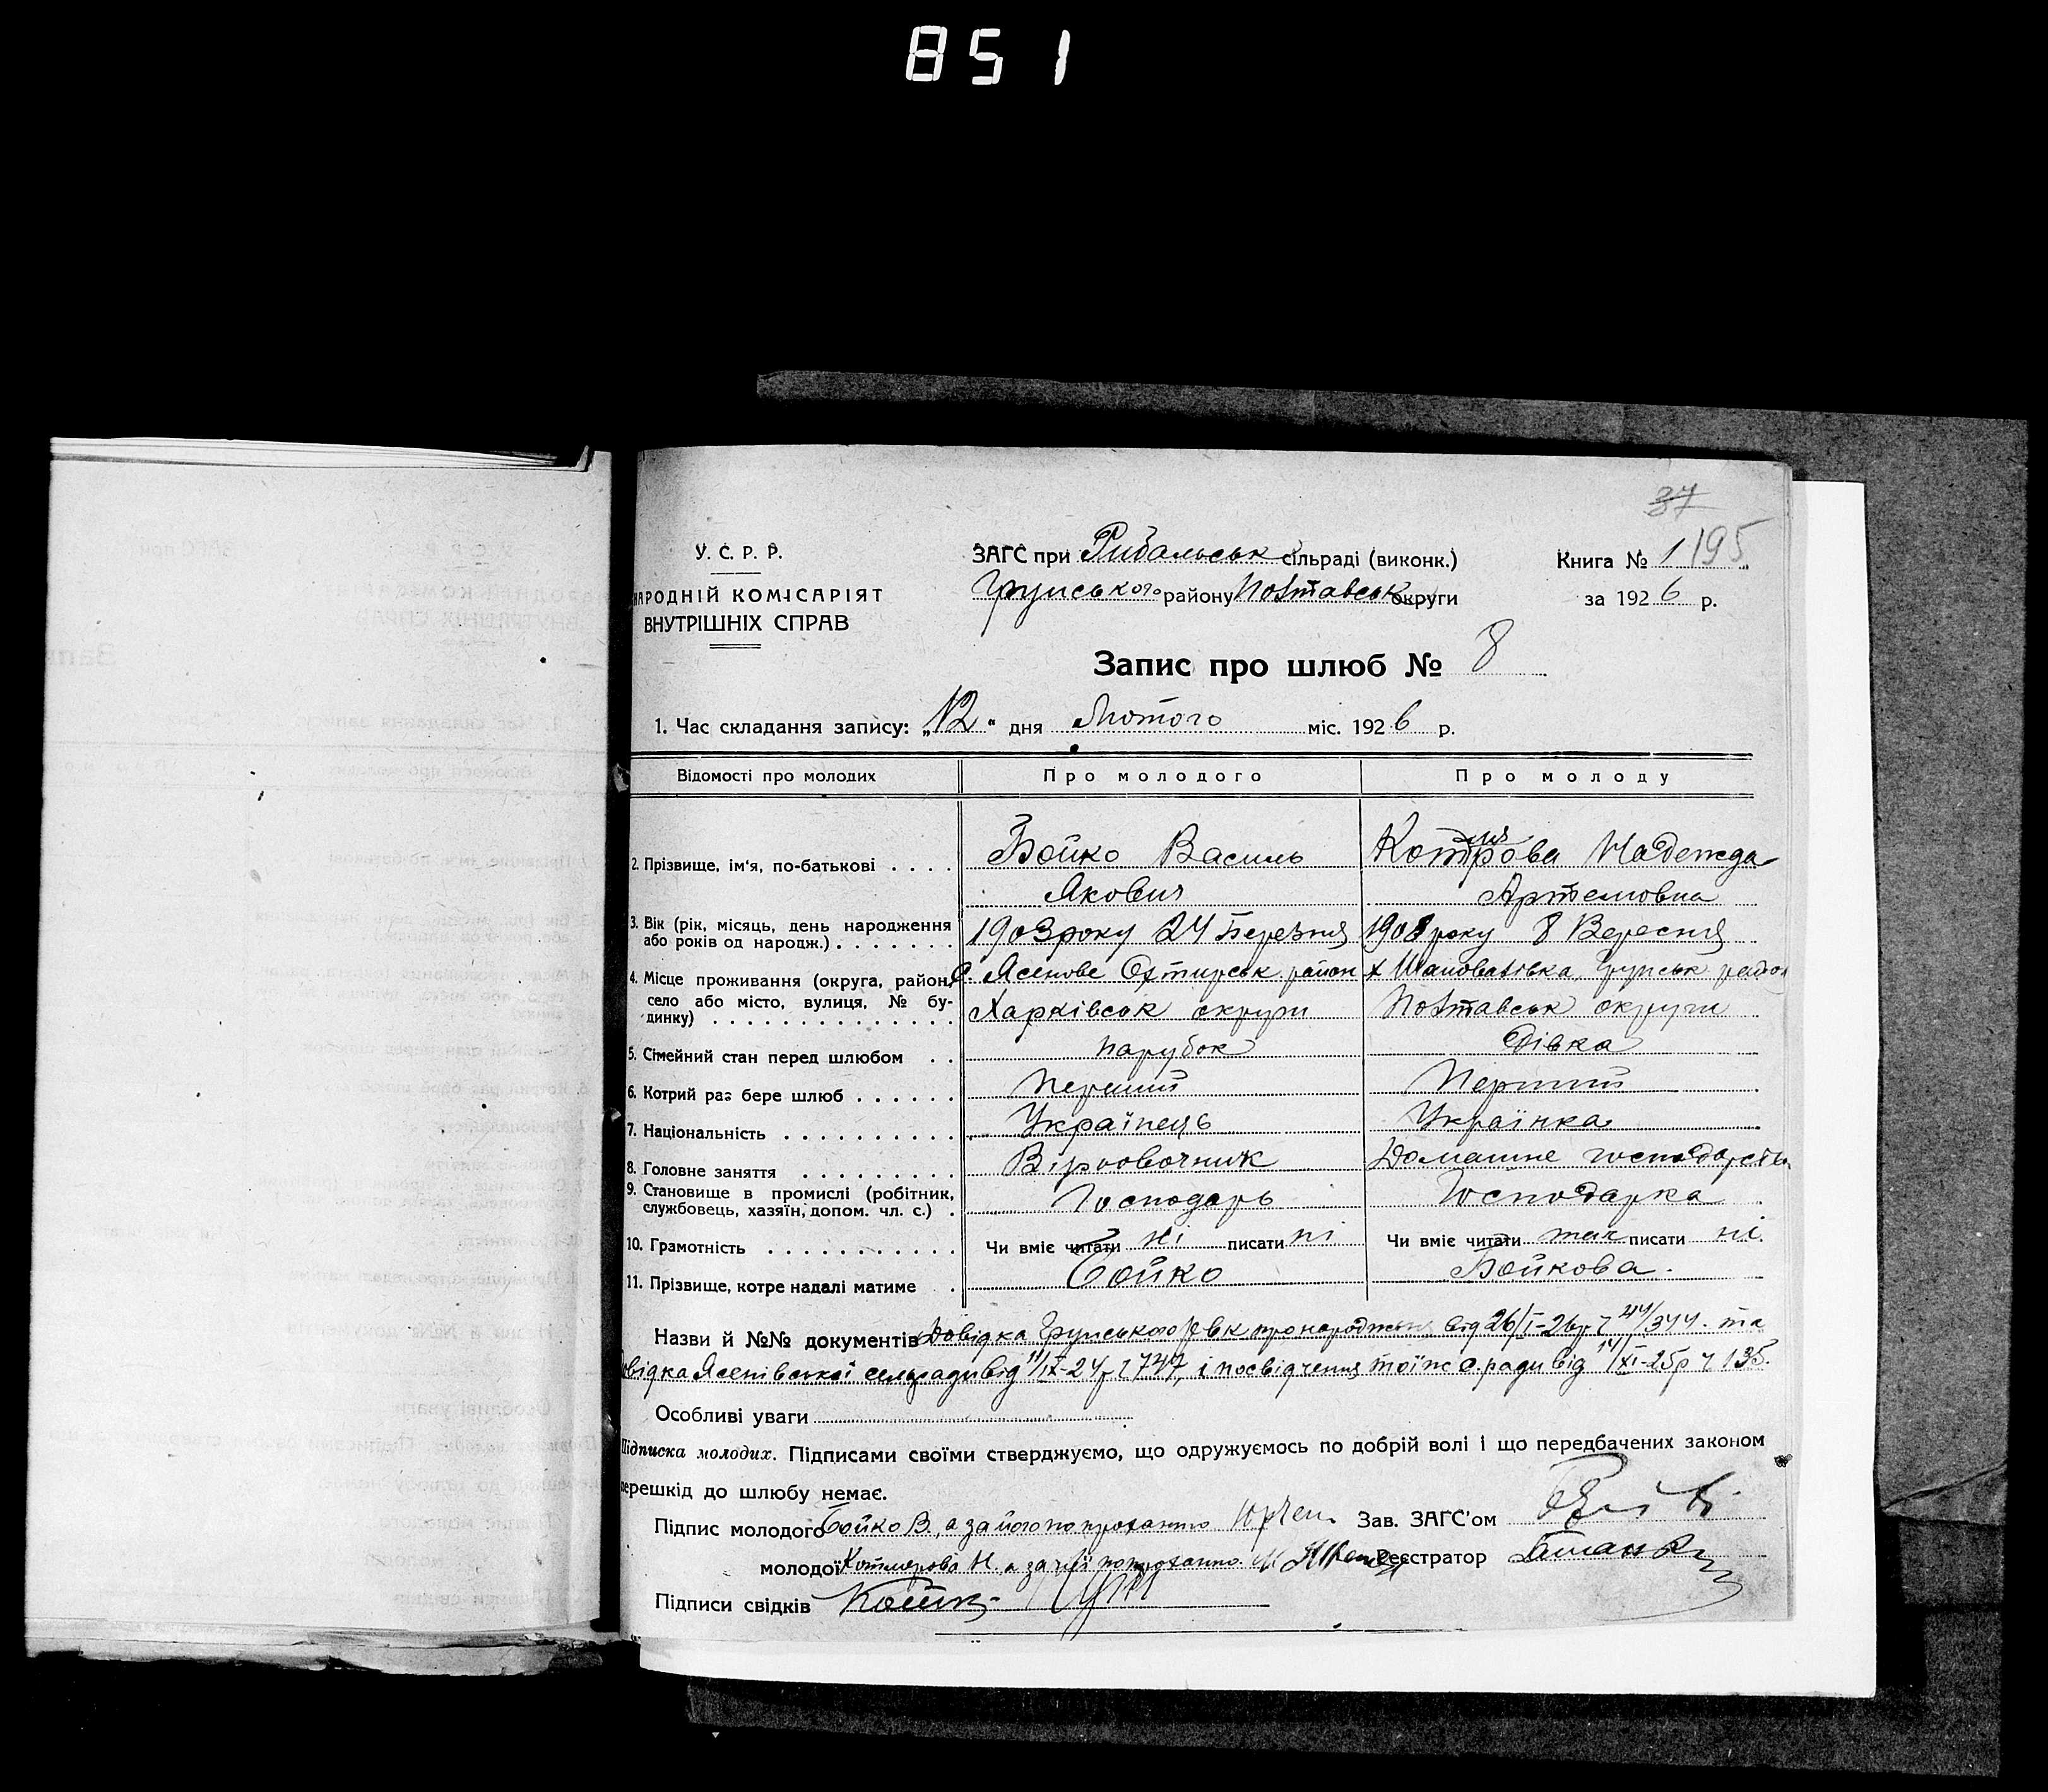 851
37
У. С. Р. Р.
НАРОДНІЙ КОМІСАРІЯТ
ВНУТРІШНІХ СПРАВ
ЗАГС при Рибальськ сільраді (виконк.)
Грунського району Полтавськ округи
Книга № 1 195
за 1926 р.
Запис про шлюб № 8
1. Час складання запису: „12" дня Лютого міс. 1926 р.
Відомості про молодих Про молодого Про молоду
2. Прізвище, ім'я, по-батькові . . . . Бойко Василь Надежда
Якович Артемовна
3. Вік (рік, місяць, день народження або років од народж.) . . . . . . . 1903 року 24 Березня 1908 року 8 Вересня
4. Місце проживання (округа, район, село або місто, вулиця, № будинку) . . . . . . . . . . . . . . с. Ясенове Охтирськ. район х Шаповалівка Грунськ район
Харківськ округи Полтавськ округи
5. Сімейний стан перед шлюбом . . парубок Дівка
6. Котрий раз бере шлюб . . . . . . Перший Перший
7. Національність . . . . . . . . . . . Українець Українка
8. Головне заняття . . . . . . . . . Домашне господарство
9. Становище в промислі (робітник, службовець, хазяїн, допом. чл. с.) . Господарь Господарка
10. Грамотність . . . . . . . . . . . Чи вміє читати ні писати ні Чи вміє читати так писати ні.
11. Прізвище, котре надалі матиме . Бойко Бойкова.
Назви й №№ документів Довідка Грунського РВК про народження від 26/I-26р ч 44/344. та
довідка Ясенівської сельради від 11/IX-24р ч 747, і посвідчення тоїж с. ради від 14/XI-25р ч 135.
Особливі уваги
Підписка молодих. Підписами своїми стверджуємо, що одружуємось по добрій волі і що передбачених законом
перешкід до шлюбу немає.
Підпис молодого Бойко В., а за його по проханню Зав. ЗАГС'ом
молодої Н. а за неї по проханню Реєстратор
Підписи свідків